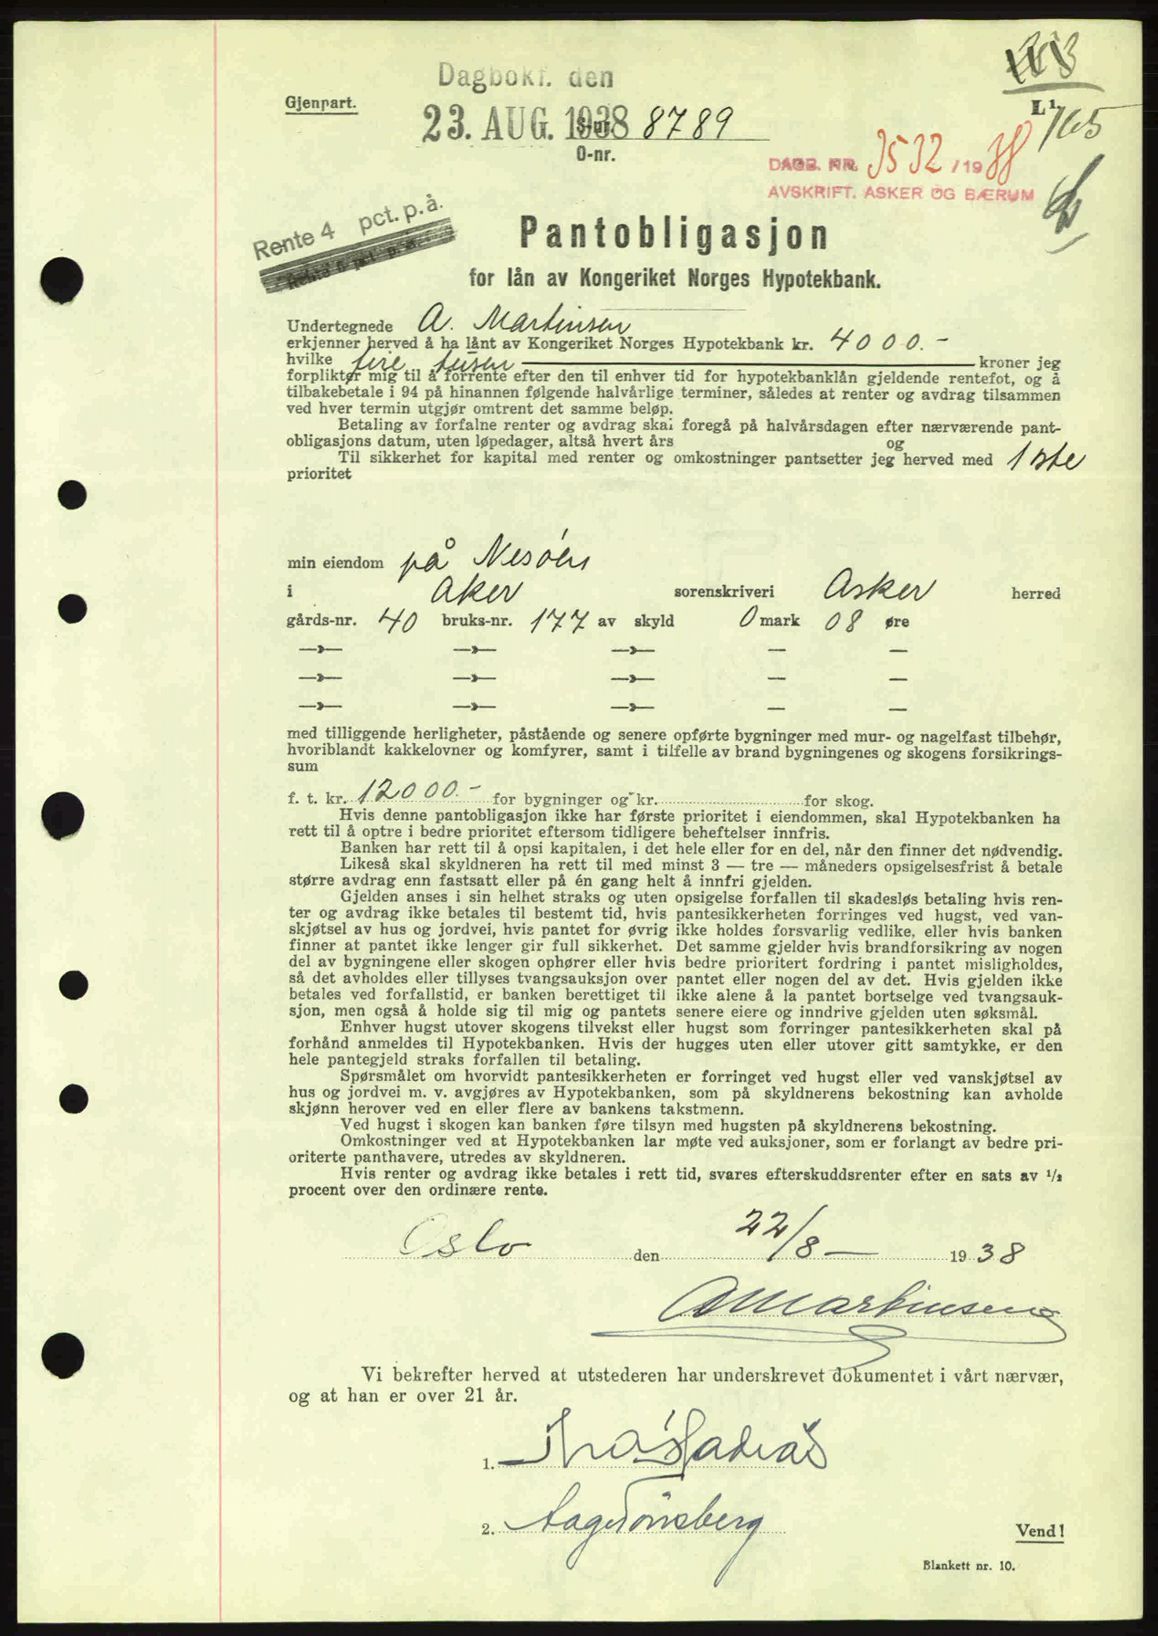 Dagbokf. den
Gjenpart.
23. AUG. 1938 8789
O-nr.
L 1/165
DAGB. NR. 3532/1938
AVSKRIFT. ASKER OG BÆRUM
Rente 4 pct. p. å.
Pantobligasjon
for lån av Kongeriket Norges Hypotekbank.
Undertegnede A. Martinsen
erkjenner herved å ha lånt av Kongeriket Norges Hypotekbank kr. 4000.-
hvilke fire tusen kroner jeg
forplikter mig til å forrente efter den til enhver tid for hypotekbanklån gjeldende rentefot, og å
tilbakebetale i 94 på hinannen følgende halvårlige terminer, således at renter og avdrag tilsammen
ved hver termin utgjør omtrent det samme beløp.
Betaling av forfalne renter og avdrag skal foregå på halvårsdagen efter nærværende pant-
obligasjons datum, uten løpedager, altså hvert års og
Til sikkerhet for kapital med renter og omkostninger pantsetter jeg herved med 1ste
prioritet
min eiendom på Nesøen
i Aker sorenskriveri Asker herred
gårds-nr. 40 bruks-nr. 177 av skyld 0 mark 08 øre
—»— —»— —»— — —
—»— —»— —»— — —
—»— —»— —»— — —
med tilliggende herligheter, påstående og senere opførte bygninger med mur- og nagelfast tilbehør,
hvoriblandt kakkelovner og komfyrer, samt i tilfelle av brand bygningenes og skogens forsikrings-
sum
f. t. kr. 12000.- for bygninger og kr. for skog.
Hvis denne pantobligasjon ikke har første prioritet i eiendommen, skal Hypotekbanken ha
rett til å optre i bedre prioritet eftersom tidligere beheftelser innfris.
Banken har rett til å opsi kapitalen, i det hele eller for en del, når den finner det nødvendig.
Likeså skal skyldneren ha rett til med minst 3 — tre — måneders opsigelsesfrist å betale
større avdrag enn fastsatt eller på én gang helt å innfri gjelden.
Gjelden anses i sin helhet straks og uten opsigelse forfallen til skadesløs betaling hvis ren-
ter og avdrag ikke betales til bestemt tid, hvis pantesikkerheten forringes ved hugst, ved van-
skjøtsel av hus og jordvei, hvis pantet for øvrig ikke holdes forsvarlig vedlike, eller hvis banken
finner at pantet ikke lenger gir full sikkerhet. Det samme gjelder hvis brandforsikring av nogen
del av bygningene eller skogen ophører eller hvis bedre prioritert fordring i pantet misligholdes,
så det avholdes eller tillyses tvangsauksjon over pantet eller nogen del av det. Hvis gjelden ikke
betales ved forfallstid, er banken berettiget til ikke alene å la pantet bortselge ved tvangsauk-
sjon, men også å holde sig til mig og pantets senere eiere og inndrive gjelden uten søksmål.
Enhver hugst utover skogens tilvekst eller hugst som forringer pantesikkerheten skal på
forhånd anmeldes til Hypotekbanken. Hvis der hugges uten eller utover gitt samtykke, er den
hele pantegjeld straks forfallen til betaling.
Spørsmålet om hvorvidt pantesikkerheten er forringet ved hugst eller ved vanskjøtsel av
hus og jordvei m. v. avgjøres av Hypotekbanken, som på skyldnerens bekostning kan avholde
skjønn herover ved en eller flere av bankens takstmenn.
Ved hugst i skogen kan banken føre tilsyn med hugsten på skyldnerens bekostning.
Omkostninger ved at Hypotekbanken lar møte ved auksjoner, som er forlangt av bedre pri-
oriterte panthavere, utredes av skyldneren.
Hvis renter og avdrag ikke betales i rett tid, svares efterskuddsrenter efter en sats av 1/2
procent over den ordinære rente.
Oslo den 22/8 — 1938
A Martinsen
Vi bekrefter herved at utstederen har underskrevet dokumentet i vårt nærvær,
og at han er over 21 år.
1.
2. Aage Tönsberg
Vend!
Blankett nr. 10.